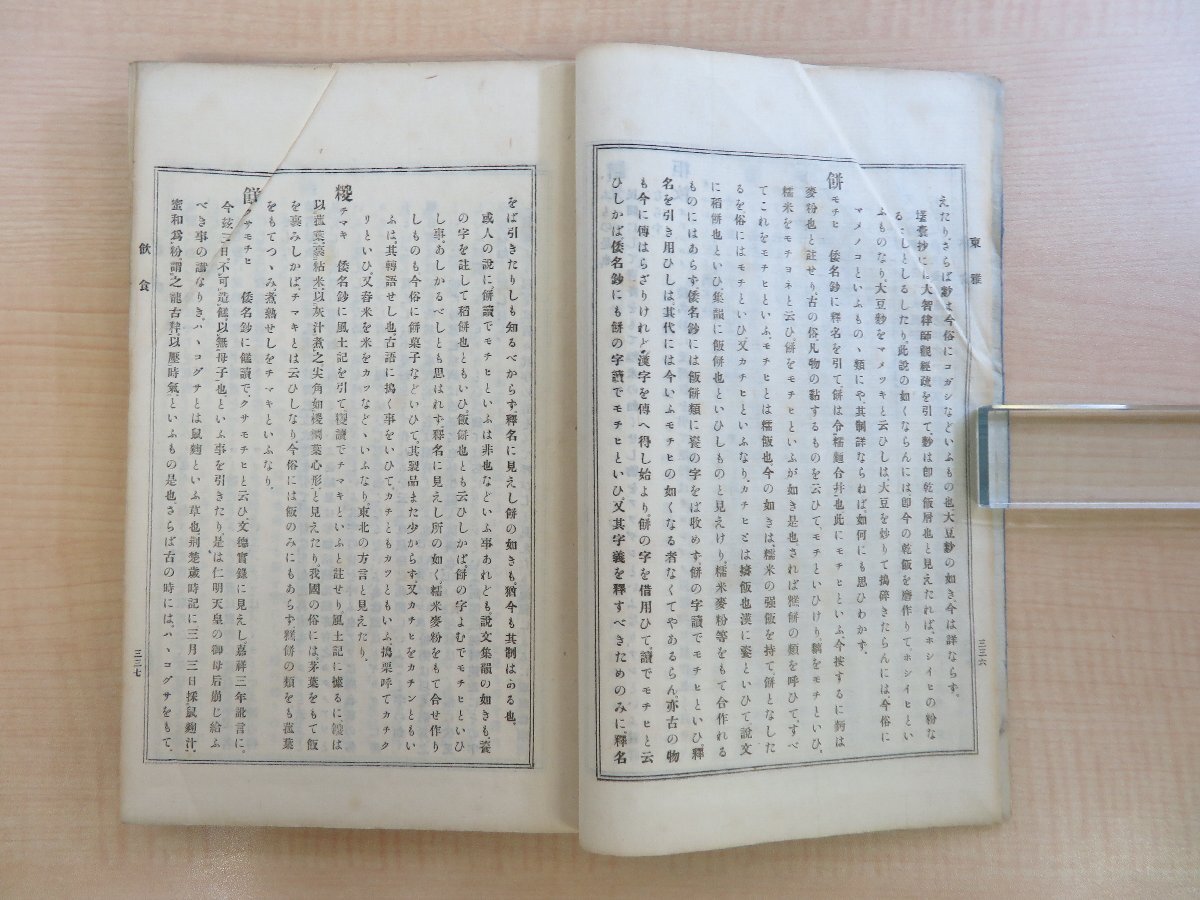 東雅
えたり、さらば麨は今俗にコガシなどいふもの也、大豆麨の如き今は詳ならず。
壒囊抄には大智律師觀經疏を引て、麨は卽乾飯屑也と見えたれば、ホシイヒの粉な
るべしとしるしたり、此說の如くならんには卽今の乾飯を磨作りて、ホシイヒとい
ふものなり大豆麨をマメツキと云ひしは、大豆を炒りて搗碎きたらんには、今俗に
マメノコといふものゝ類にや其制詳ならねば、如何にも思ひわかず。
餅モチヒ 倭名鈔に釋名を引て、餅は令糯麵合幷也此にモチヒといふ、今按するに麪は
麥粉也と註せり、古の俗凡物の黏するものを云ひて、モチといひけり、黐をモチといひ、
糯米をモチヨネと云ひ、餅をモチヒといふが如き是也されば糕餅の類を呼ひて、すべ
てこれをモチヒといふ、モチヒとは糯飯也今の如きは糯米の强飯を持て餅となした
るを俗にはモチといひ又カチヒといふなり、カチヒとは擣飯也漢に餈といひて說文
に稻餅也といひ、集韻に飯餅也といひしものと見えけり、糯米麥粉等をもて合作れる
ものにはあらず倭名鈔には飯餅類に餈の字をば收めず餅の字讀でモチヒといひ、釋
名を引き用ひしは、其代には今いふモチヒの如くなる者なくてやあるらん、亦古の物
も今に傳はらざりけれど、漢字を傳へ得し始より、餅の字を借用ひて、讀でモチヒと云
ひしかば倭名鈔にも餅の字讀でモチヒといひ、又其字義を釋すべきためのみに、釋名
三三六
をば引きたりしも知るべからず釋名に見えし餅の如きも、猶今も其制はある也。
或人の說に、餅讀でモチヒといふは非也などいふ事あれども、說文集韻の如きも、餈
の字を註して稻餅也ともいひ、飯餅也とも云ひしかば、餅の字よむでモチヒといひ
し事、あしかるべしとも思はれず釋名に見えし所の如く、糯米麥粉をもて合せ作り
しものも今俗に餅菓子などいひて、其製品また少からず、又カチヒをカチンともい
ふは、其轉語せし也、古語に搗く事をいひてカチともカツともいふ搗栗呼てカチク
リといひ、又舂米を米をカツなどゝいふなり東北の方言と見えたり。
糭チマキ 倭名鈔に風土記を引て糭讀でチマキといふと註せり風土記に據るに糭は
以菰葉、裹粘米、以灰汁煮之尖角如椶櫚葉心形と見えたり、我國の俗には、茅葉をもて飯
を裹みしかば、チマキとは云ひしなり今俗には飯のみにもあらず糕餅の類をも菰葉
をもてつゝみ煮熟せしをチマキといふなり。
クサモチヒ 倭名鈔に䭆讀でクサモチヒと云ひ文德實錄に見えし、嘉祥三年訛言に、
今玆三日、不可造䭆以無母子也といふ事を引きたり是は仁明天皇の御母后崩じ給ふ
べき事の讖なりき、ハヽコグサとは鼠麴といふ草也、荊楚歲時記に三月三日採鼠麴汁、
蜜和爲粉謂之龍舌䉽、以壓時氣といふもの是也、さらば古の時には、ハヽコグサをもて、
飮食
三三七